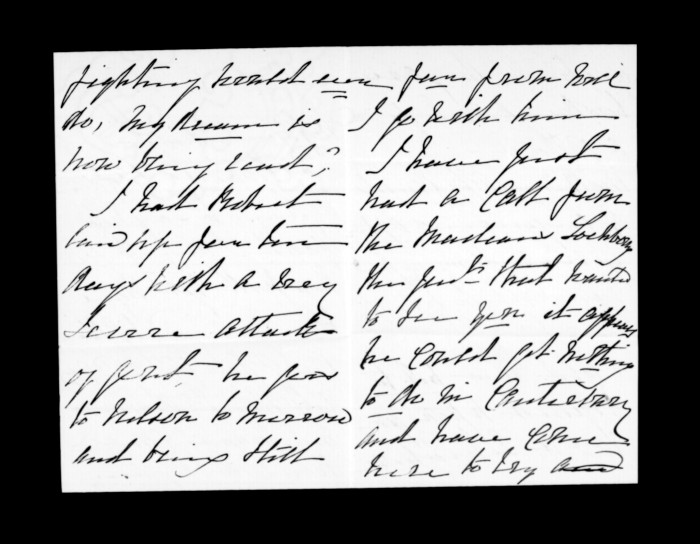 fighting would ever
do, my dream is
now being read,?
I had Robert
laid up for ten
days with a very
severe attack
of gout, he goes
to Nelson to morrow
and being still
far from well
I go with him
I have just
had a call from
the Maclean
the that wanted
to see you it appears
he could get nothing
to do in Canterbury
and have come
here to try and